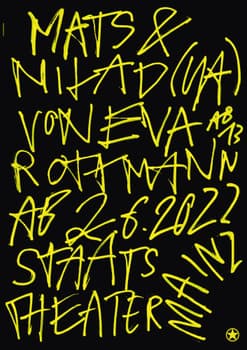 MATS &
NIHAD (UA)
VON EVA AB 13
ROTTMANN
AB 2.6.2022
STAATS
THEATER MAINZ